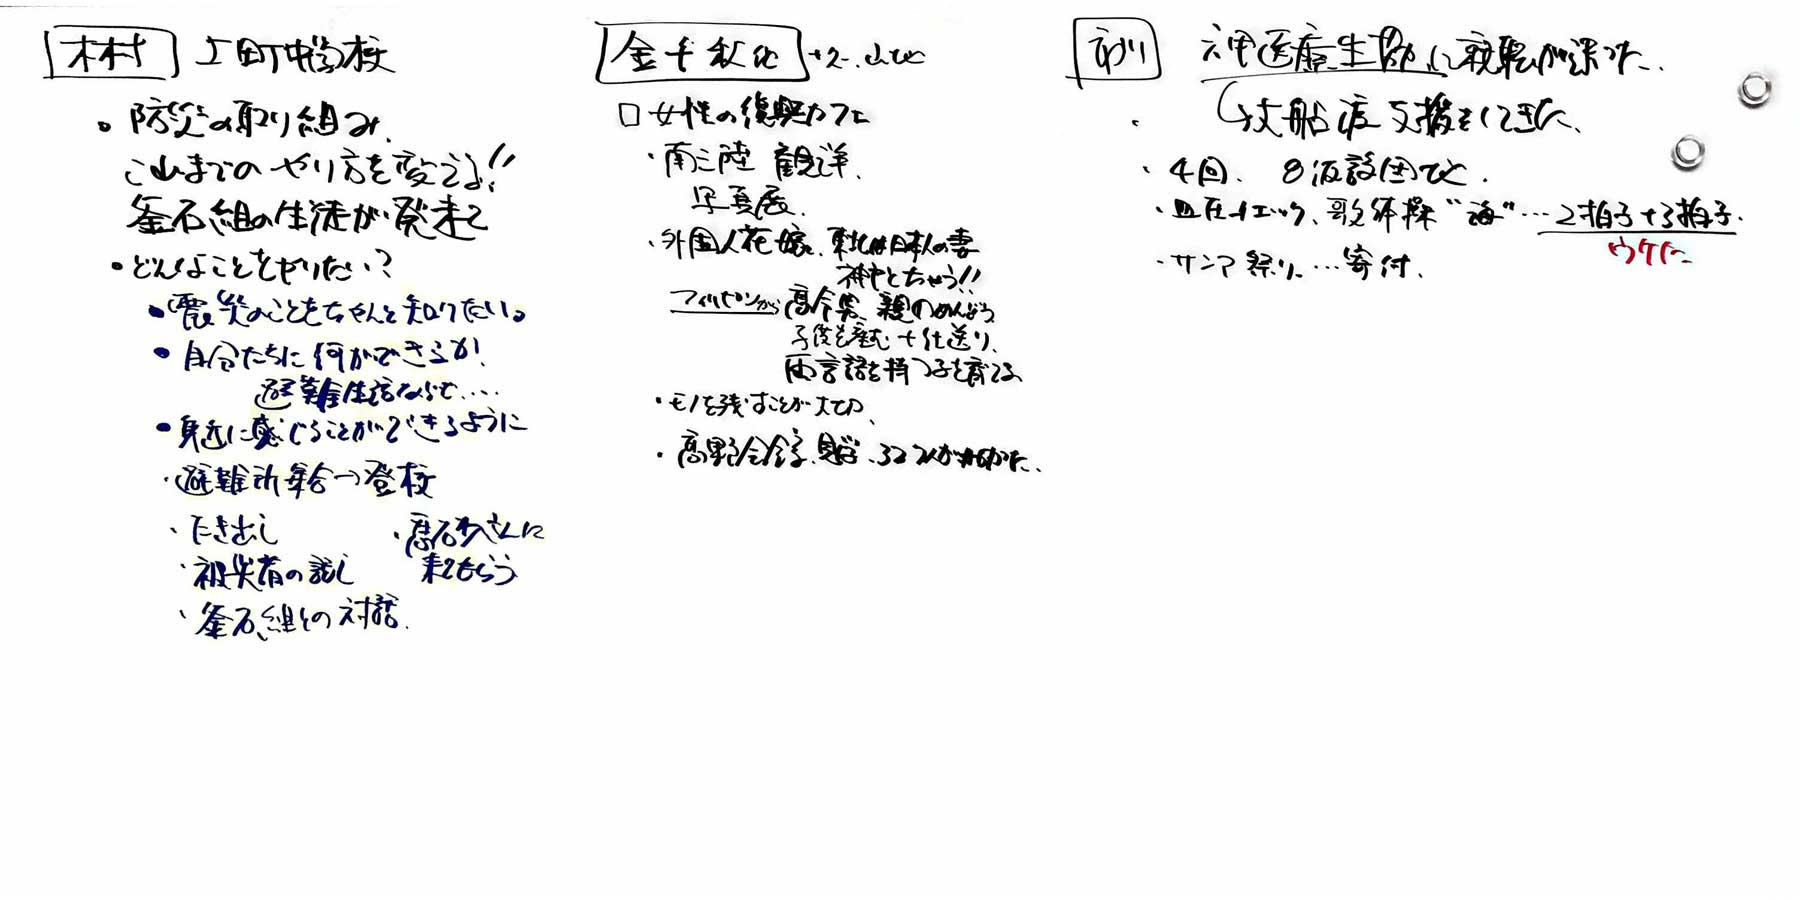 木村 上町中学校
・防災の取り組み、
これまでのやり方を変える!!
釜石組の生徒が発案で
・どんなことをやりたい?
・震災のことをちゃんと知りたい。
・自分たちに何ができるか!
避難生活ならで....
・身近に感じることができるように
・避難所集合→登校
・たき出し
・被災者の話し
・釜石組との対話.
・さんに
来てもらう
金千秋
□女性の復興カフェ
・南三陸 観洋.
写真展.
・外国人花嫁、私は日本人の妻
神戸とちがう!!
フィリピンから 高令男、親のめんどう
子供を産む+仕送り、
両言語を持つ子を育てる
・モノを残すことが大切、
・高野会館、見学、
医療生協に就職が決った.
↳大船渡支援をしてきた、
・4回、8仮設団
・血圧チェック、歌体操"海"…2拍子+3拍子.
ウケた
・サンマ祭り、…寄付.